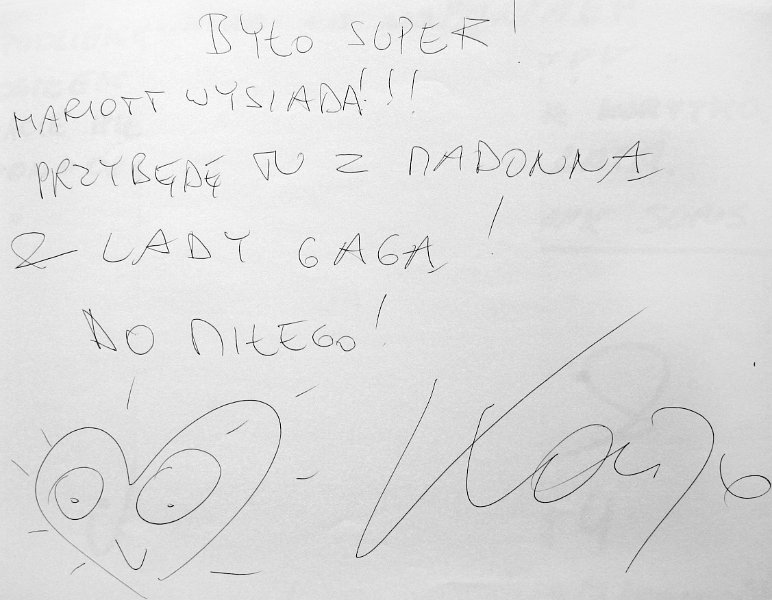 BYŁO SUPER!
MARIOTT WYSIADA!!!
PRZYBĘDĘ TU Z MADONNĄ
Z LADY GAGĄ!
DO MIŁEGO!